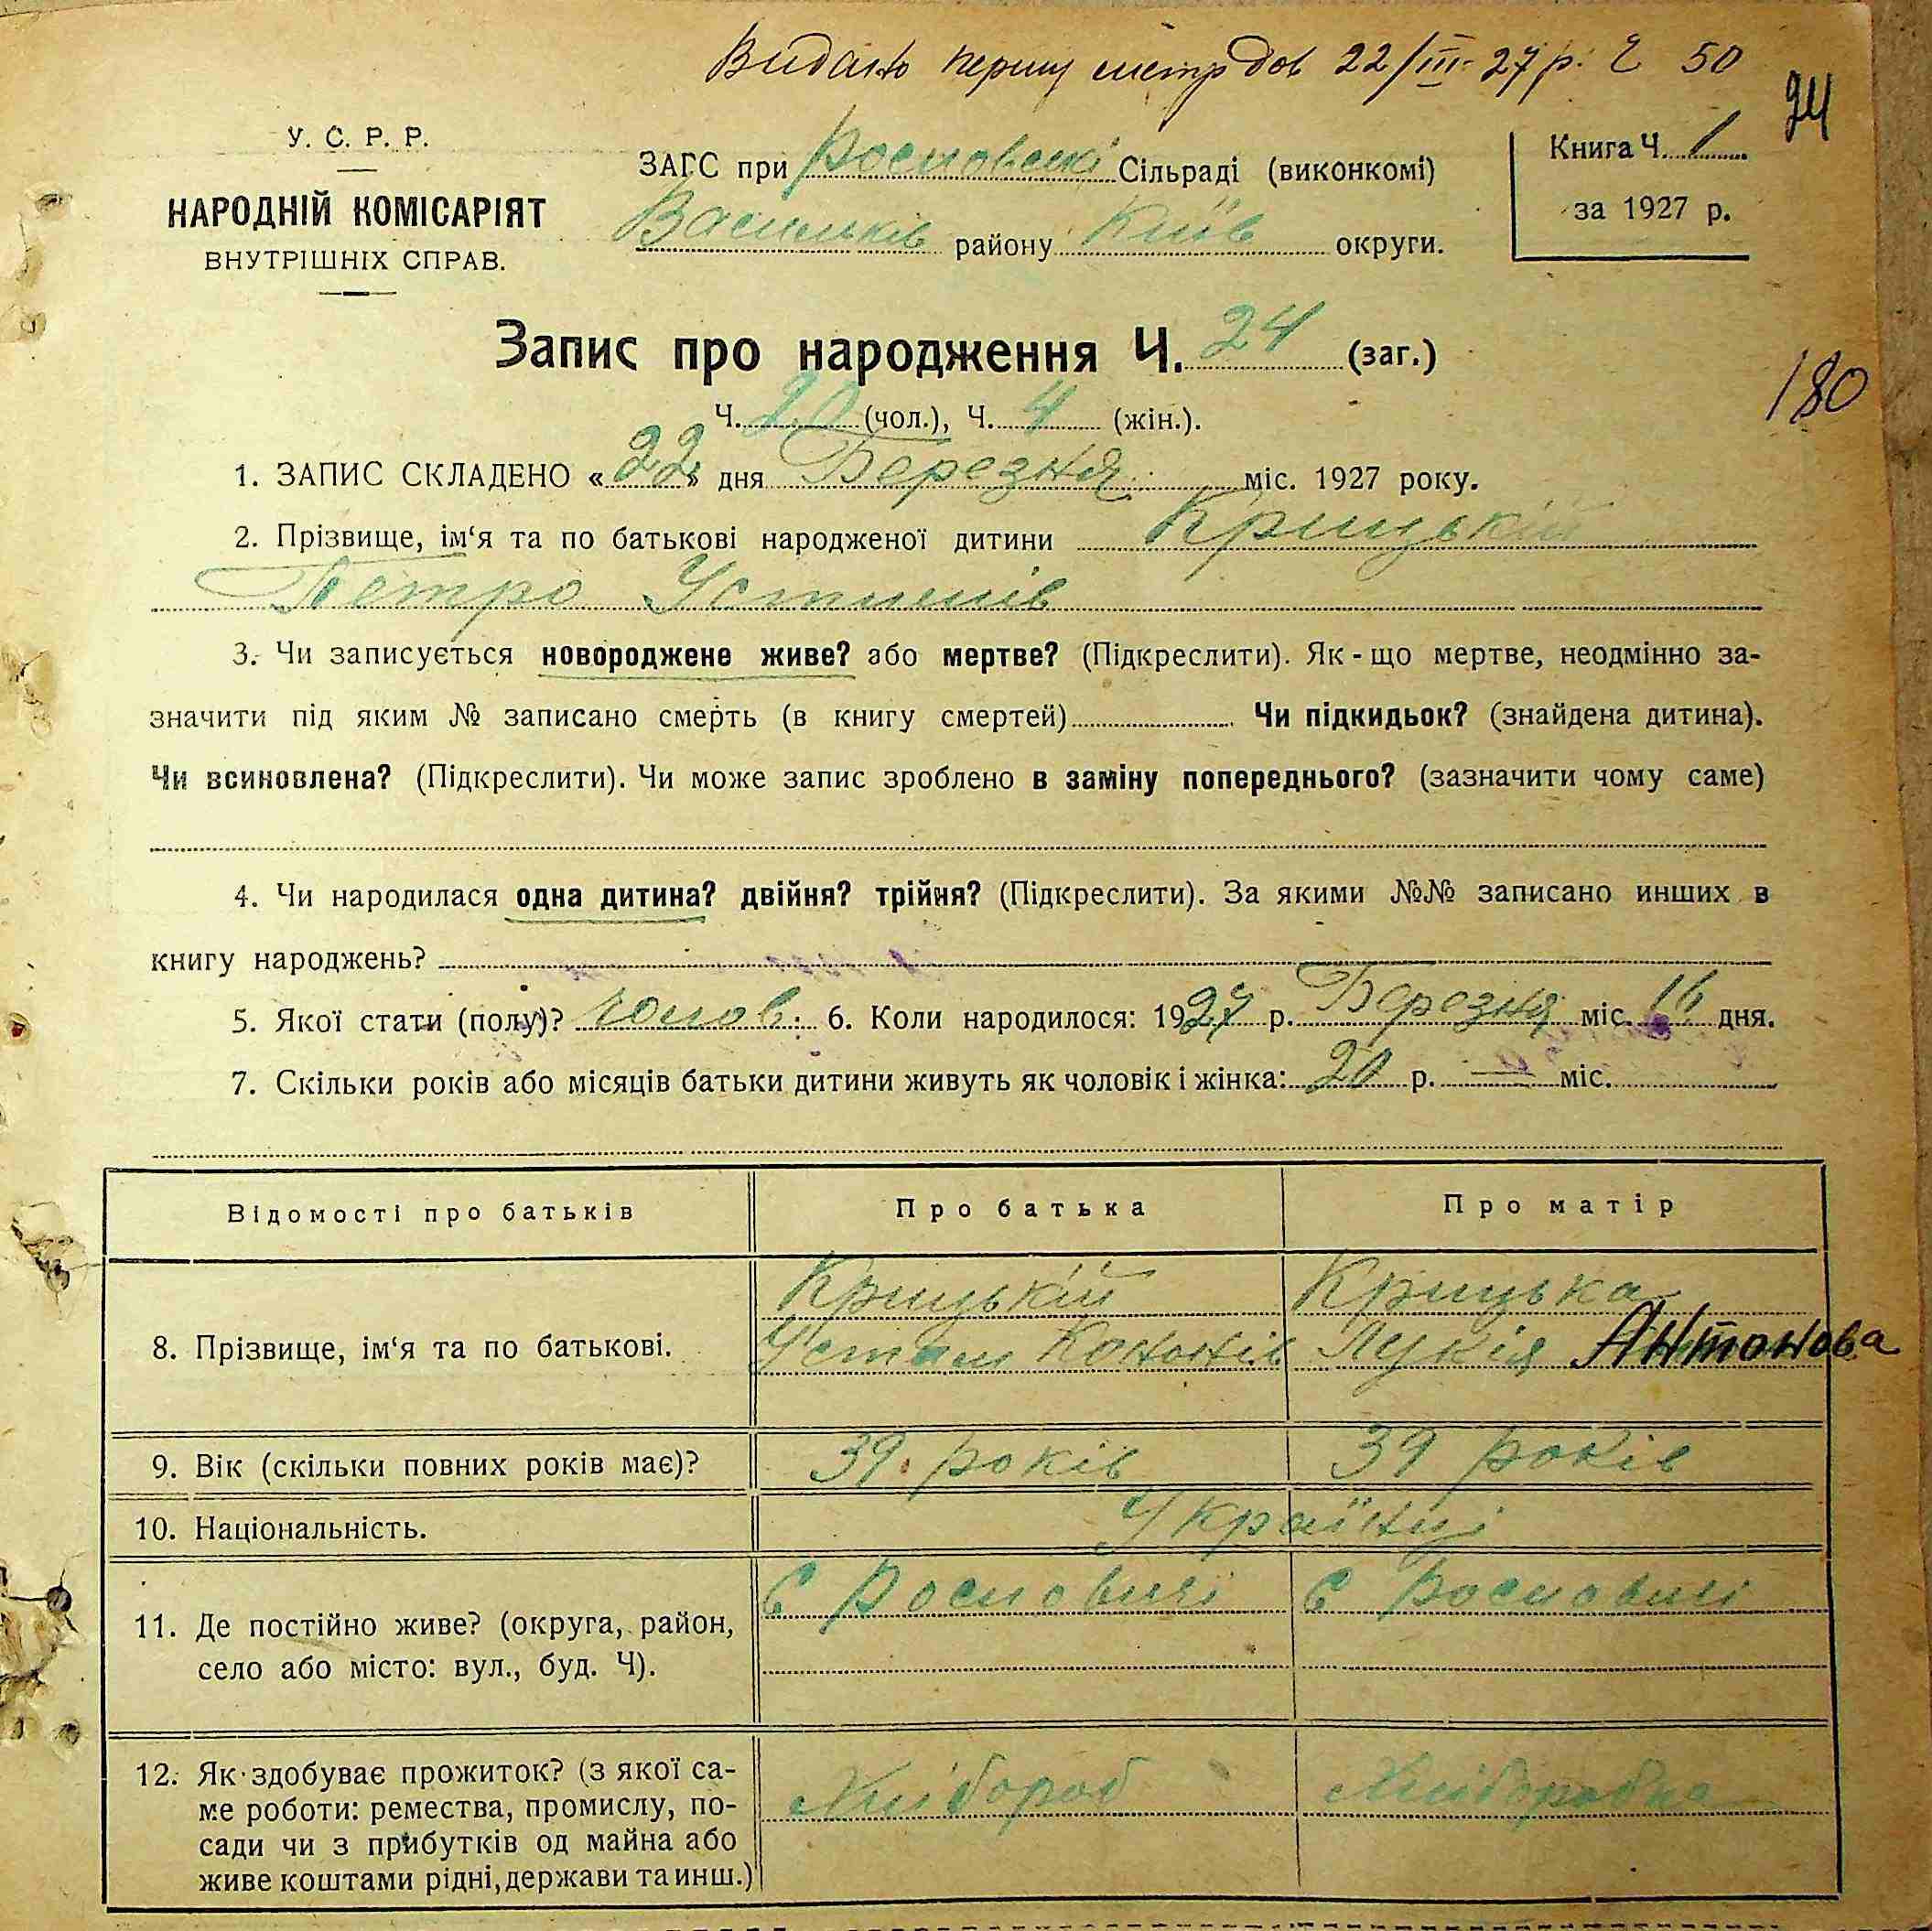 Видано першу метр дов 22/III-27 р. Ч 50
24
У. С. Р. Р.
НАРОДНІЙ КОМІСАРІЯТ
ВНУТРІШНІХ СПРАВ.
ЗАГС при Росновські Сільраді (виконкомі)
Васильків району Київ округи.
Книга Ч. 1
за 1927 р.
Запис про народження Ч. 24 (заг.)
180
Ч. 20 (чол.), Ч. 4 (жін.).
1. ЗАПИС СКЛАДЕНО «22» дня Березня міс. 1927 року.
2. Прізвище, ім‘я та по батькові народженої дитини Крицькій
Петро Устинів
3. Чи записується новороджене живе? або мертве? (Підкреслити). Як-що мертве, неодмінно за-
значити під яким № записано смерть (в книгу смертей) Чи підкидьок? (знайдена дитина).
Чи всиновлена? (Підкреслити). Чи може запис зроблено в заміну попереднього? (зазначити чому саме)
4. Чи народилася одна дитина? двійня? трійня? (Підкреслити). За якими №№ записано инших в
книгу народжень?
5. Якої стати (полу)? чолов. 6. Коли народилося: 1927 р. Березня міс. 16 дня.
7. Скільки років або місяців батьки дитини живуть як чоловік і жінка: 20 р. — міс.
Відомості про батьків Про батька Про матір
8. Прізвище, ім‘я та по батькові.
Крицькій
Устим Кононів
Крицька
Лукія Антонова
9. Вік (скільки повних років має)? 39. років 39 років
10. Національність. Українці
11. Де постійно живе? (округа, район,
село або місто: вул., буд. Ч).
с Росновичі с Росновичі
12. Як здобуває прожиток? (з якої са-
ме роботи: ремества, промислу, по-
сади чи з прибутків од майна або
живе коштами рідні, держави та инш.)
Хлібороб Хлібопобка